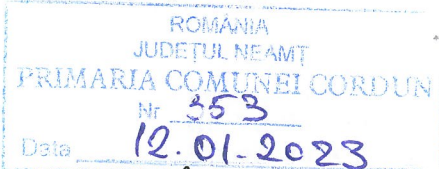 ROMÂNIA
JUDEŢUL NEAMŢ
PRIMARIA COMUNEI CORDUN
Nr 353
Data 12.01-2023